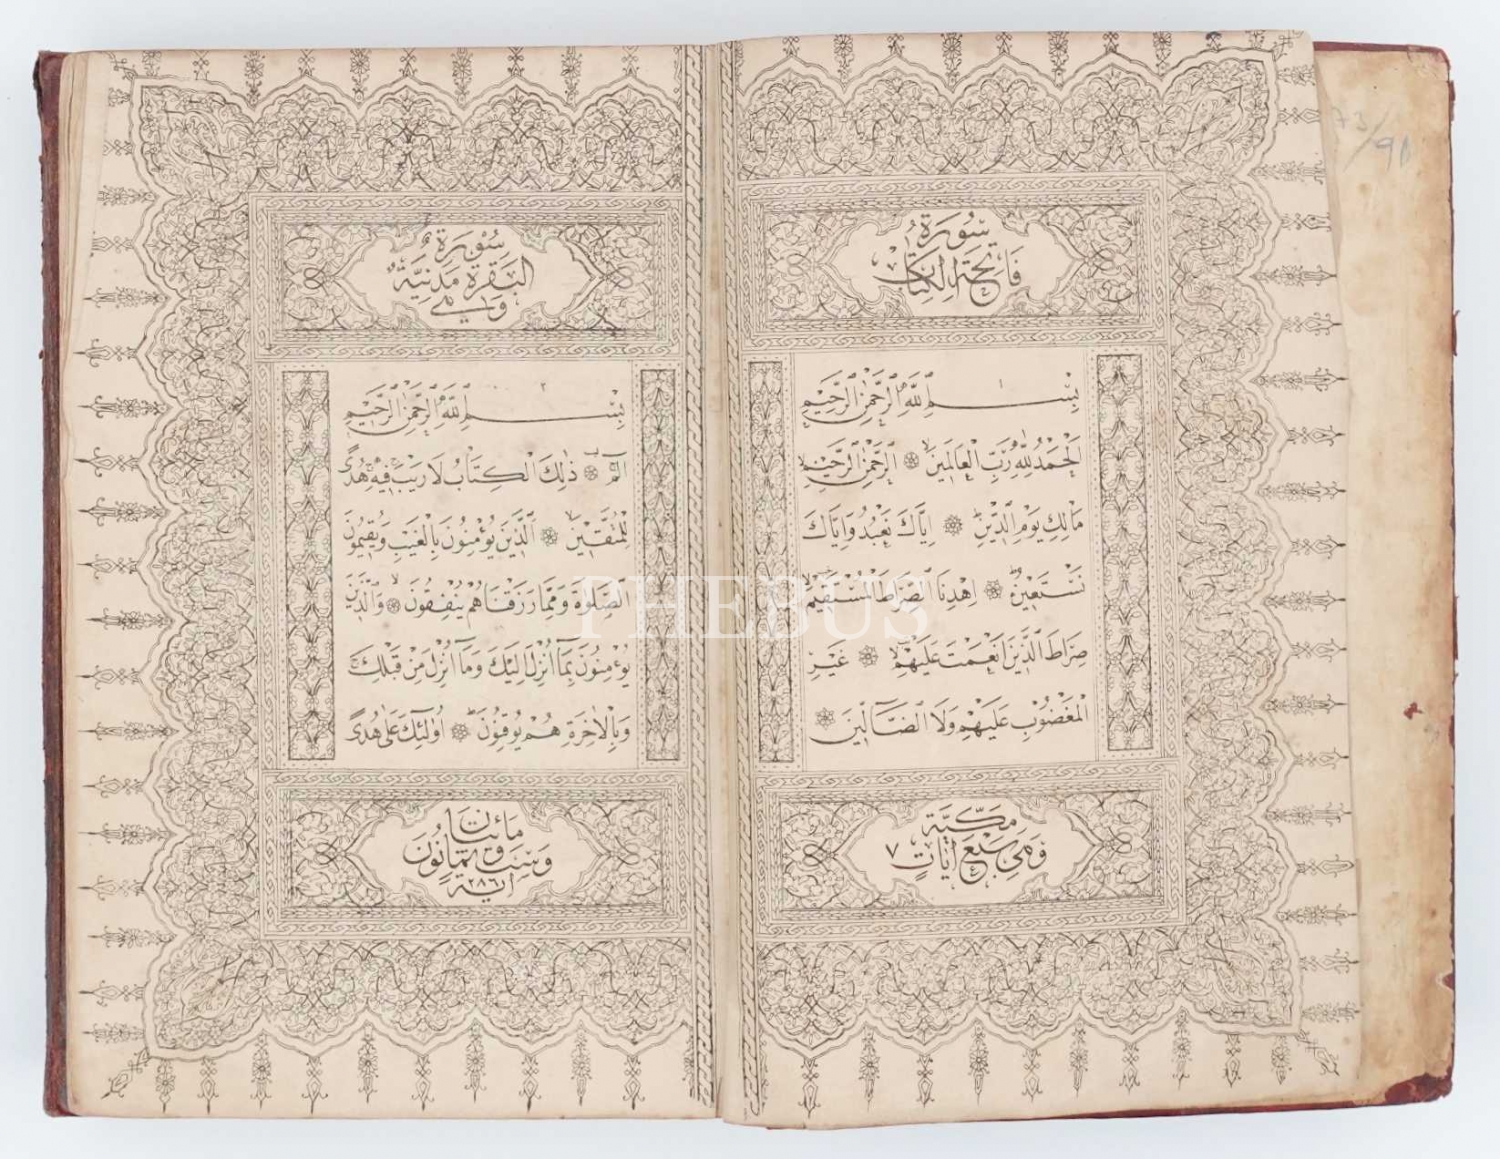 سُورَةُ
فَاتِحَةِ الْكِتَابِ
١
بِسْمِ اللّٰهِ الرَّحْمٰنِ الرَّحِيمِ
اَلْحَمْدُ لِلّٰهِ رَبِّ الْعَالَمِينَ ۙ ۞ اَلرَّحْمٰنِ الرَّحِيمِ ۙ
مَالِكِ يَوْمِ الدِّينِ ۜ ۞ اِيَّاكَ نَعْبُدُ وَاِيَّاكَ
نَسْتَعِينُ ۜ ۞ اِهْدِنَا الصِّرَاطَ الْمُسْتَقِيمَ ۙ
صِرَاطَ الَّذِينَ اَنْعَمْتَ عَلَيْهِمْ ۙ ۞ غَيْرِ
الْمَغْضُوبِ عَلَيْهِمْ وَلَا الضَّٓالِّينَ ۞
مَكِّيَّةٌ
وَهِيَ سَبْعُ اٰيَاتٍ ٧
سُورَةُ
الْبَقَرَةِ مَدَنِيَّةٌ
وَهِيَ
٢
بِسْمِ اللّٰهِ الرَّحْمٰنِ الرَّحِيمِ
الٓمٓ ۞ ذٰلِكَ الْكِتَابُ لَا رَيْبَ ۛ فِيهِ ۛ هُدًى
لِلْمُتَّقِينَ ۙ ۞ اَلَّذِينَ يُؤْمِنُونَ بِالْغَيْبِ وَيُقِيمُونَ
الصَّلٰوةَ وَمِمَّا رَزَقْنَاهُمْ يُنْفِقُونَ ۙ ۞ وَالَّذِينَ
يُؤْمِنُونَ بِمَٓا اُنْزِلَ اِلَيْكَ وَمَٓا اُنْزِلَ مِنْ قَبْلِكَ ۚ
وَبِالْاٰخِرَةِ هُمْ يُوقِنُونَ ۜ ۞ اُولٰٓئِكَ عَلٰى هُدًى
مِائَتَانِ
وَسِتٌّ وَثَمَانُونَ
اٰيَةً ٢٨٦
PHEBUS